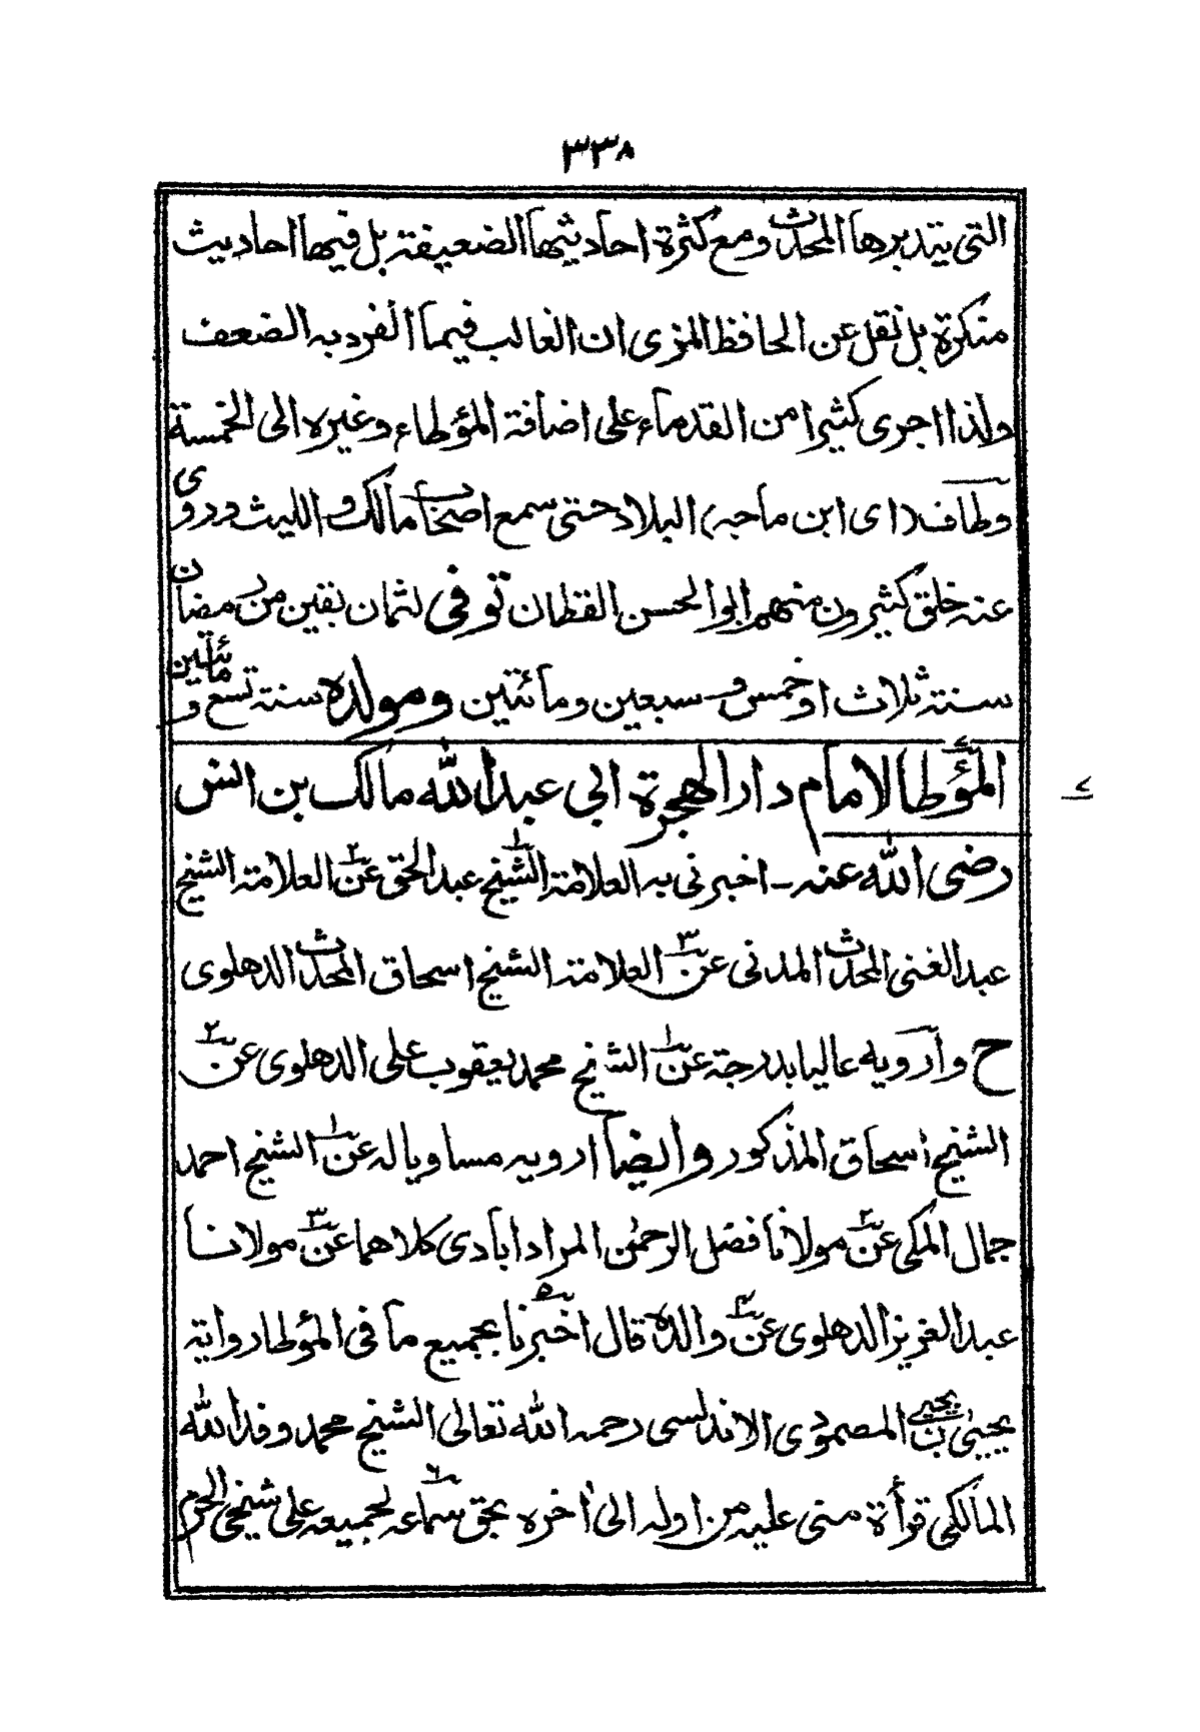 ٣٣٨
التى يتدبرها المحدث ومع كثرة احاديثها الضعيفة بل فيها احاديث
منكرة بل نقل عن الحافظ المزى ان الغالب فيما انفرد به الضعف
ولذا اجرى كثيرا من القدماء على اضافة المؤطاء وغيره الى الخمسة
وطاف (اى ابن ماجه) البلاد حتى سمع اصحاب مالك و الليث وروى
عنه خلق كثيرون منهم ابو الحسن القطان توفى لثمان بقين من رمضان
سنة ثلاث او خمس و سبعين ومائتين ومولده سنة تسع و مائتين
المؤطا لامام دار الهجرة ابى عبد الله مالك بن انس
٧
رضى الله عنه - اخبرنى به العلامة الشيخ١ عبد الحق عن٢ العلامة الشيخ
عبد الغنى المحدث المدنى عن٣ العلامة الشيخ اسحاق المحدث الدهلوى
ح وأرويه عاليا بدرجة عن١ الشيخ محمد يعقوب على الدهلوى عن٢
الشيخ اسحاق المذكور وايضا ارويه مساويا له عن١ الشيخ احمد
جمال المكى عن٢ مولانا فضل الرحمٰن المراد ابادى كلاهما عن٣ مولانا
عبد العزيز الدهلوى عن٤ والده قال اخبرنا٥ بجميع ما فى المؤطا رواية
يحيىٰ بن يحيى المصمودى الاندلسى رحمه الله تعالى الشيخ محمد وفد الله
المالكى قرأة منى عليه من اوله الى أخره بحق سماعه٦ لجميعه على شيخى الحرم